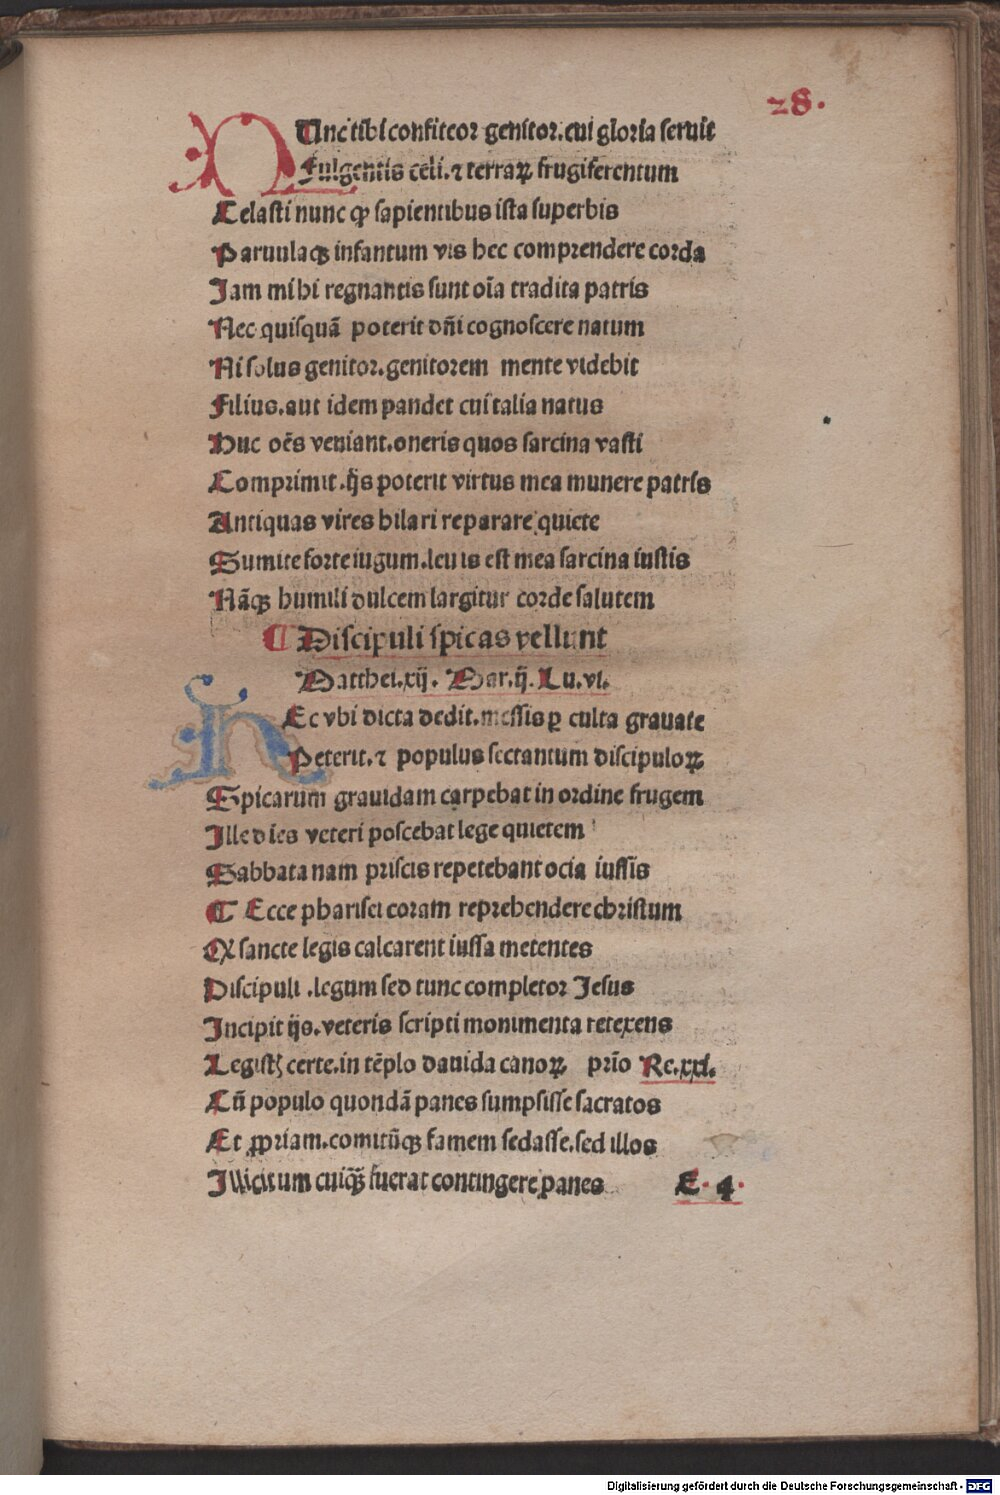 28.
NUnc tibi confiteor genitor.cui gloria seruit
Fulgentis celi.⁊ terraꝝ frugiferentum
Celasti nunc ꝙ sapientibus ista superbis
Paruulaqꝫ infantum vis hec comprendere corda
Jam mihi regnantis sunt oīa tradita patris
Nec quisquā poterit dn̄i cognoscere natum
Ni solus genitor.genitorem mente videbit
Filius.aut idem pandet cui talia natus
Huc oēs veniant.oneris quos sarcina vasti
Comprimit.hͥs poterit virtus mea munere patris
Antiquas vires hilari reparare quiete
Sumite forte iugum.leuis est mea sarcina iustis
Nāqꝫ humili dulcem largitur corde salutem
¶ Discipuli spicas vellunt
Matthei.xij. Mar.ij. Lu.vi.
HEc vbi dicta dedit.messis ꝑ culta grauate
Peterit.⁊ populus sectantum discipuloꝝ
Spicarum grauidam carpebat in ordine frugem
Ille dies veteri poscebat lege quietem
Sabbata nam priscis repetebant ocia iussis
¶ Ecce pharisei coram reprehendere christum
Qꝫ sancte legis calcarent iussa metentes
Discipuli .legum sed tunc completor Jesus
Incipit ijs.veteris scripti monimenta retexens
Legistꝭ certe.in tēplo dauida canoꝝ prīo Re.xxi.
Cū populo quondā panes sumpsisse sacratos
Et ꝓpriam.comitūqꝫ famem sedasse.sed illos
Illicitum cuiqꝫ̄ fuerat contingere panes E.4.
Digitalisierung gefördert durch die Deutsche Forschungsgemeinschaft - DFG